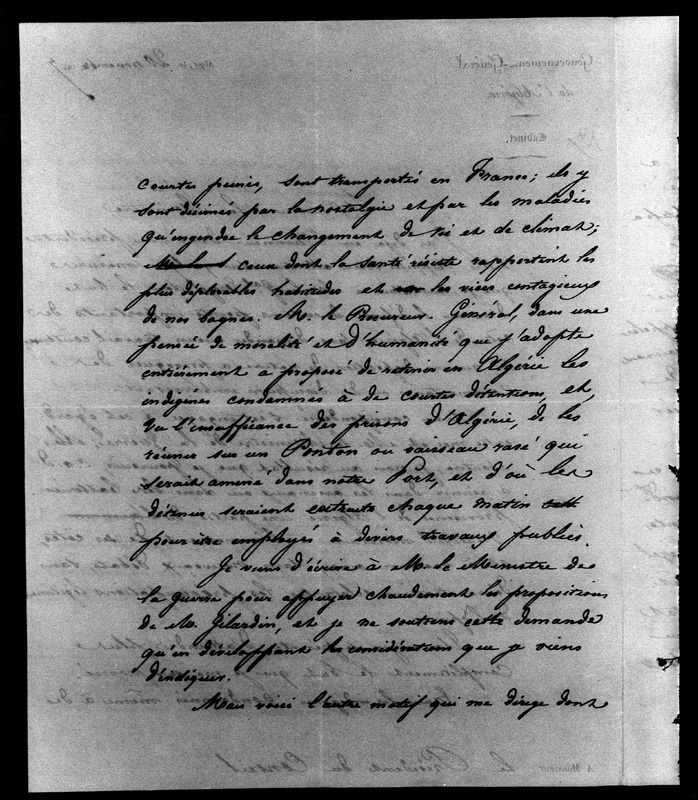 courtes peines, sont transportés en France; ils y
sont décimés par la nostalgie et par les maladies
qu'engendre le changement de vie et de climat;
ceux dont la santé résiste rapportent les
plus déplorables habitudes et les vices contagieux
de nos bagnes. M. le Procureur-Général, dans une
pensée de moralité et d'humanité que j'adopte
entièrement a proposé de retenir en Algérie les
indigènes condamnés à de courtes détentions, et,
vu l'insuffisance des prisons d'Algérie, de les
réunir sur un Ponton ou vaisseau rasé qui
serait amené dans notre Port, et d'où les
détenus seraient extraits chaque matin
pour être employés à divers travaux publics.
Je viens d'écrire à M. le Ministre de
la guerre pour appuyer chaudement les propositions
de M. Gilardin, et je ne soutiens cette demande
qu'en développant les considérations que je viens
d'indiquer.
Mais voici l'autre motif qui me dirige dont
Gouvernement-Général
de l'Algérie
Cabinet.
20 novembre
A Monsieur le Président du Conseil